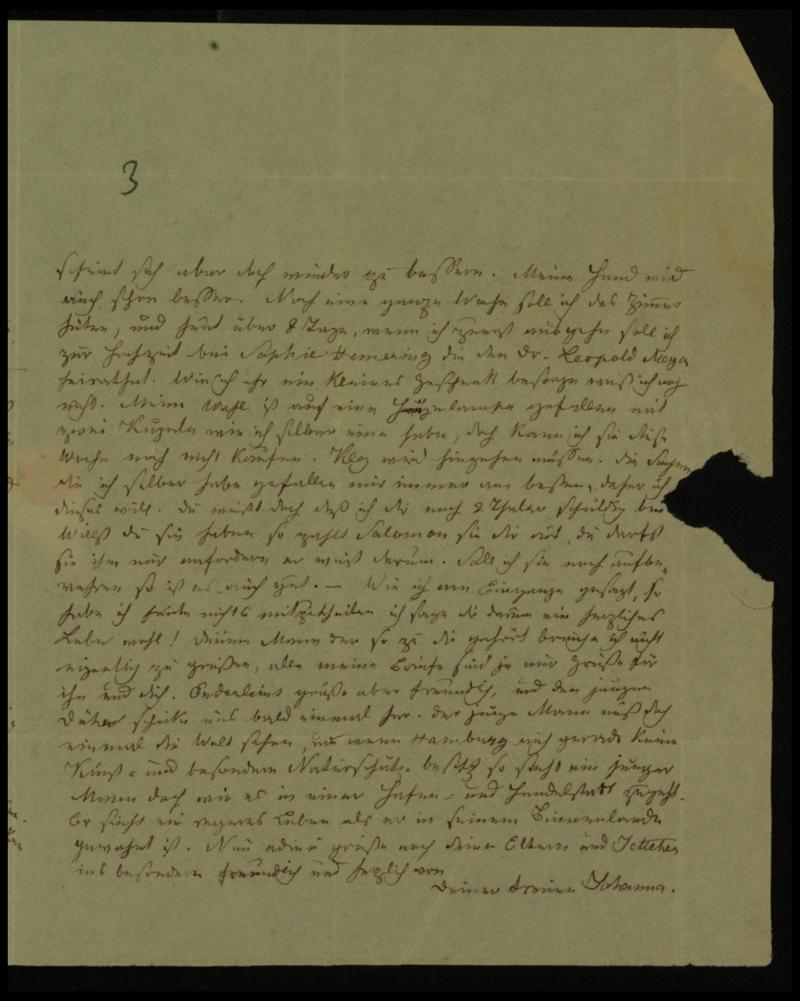 3
scheint sich aber doch wieder zu bessern. Meine Hand wird
auch schon besser. Noch eine ganze Woche soll ich das Zimmer
hüten, und heut über 8 Tage, wenn ich zuerst ausgehn soll ich
zur Hochzeit bei Sophie die den Dr. Leopold
heirathet. Wie ich ihr ein kleines Geschenk besorge weiß ich noch
nicht. Meine Wahl ist auf eine gefallen mit
zwei Kugeln wie ich selber eine habe, doch kann ich sie diese
Woche noch nicht kaufen. wird hingehen müssen. Die Sachen
die ich selber habe gefallen mir immer am besten, daher ich
dieses will. Du weißt doch daß ich dir noch 2 Thaler schuldig bin
Willst du sie haben so zahlt Salomon sie dir aus, du darfst
sie ihm nur anfordern er weiß darum. Soll ich sie noch aufbe-
wahren so ist es auch gut. — Wie ich am Eingange gesagt, so
habe ich heute nichts mitzutheilen ich sage dir darum ein herzliches
Lebe wohl! Deinen Mann der so zu dir gehört brauche ich nicht
eigentlich zu grüßen, alle meine Briefe sind ja nur Grüße für
ihn und dich. grüße aber freundlich, und den jungen
schicke uns bald einmal her. Der junge Mann muß doch
einmal die Welt sehen, und wenn Hamburg auch gerade keine
Kunst- und besondern Naturschätze besitzt so sieht ein junger
Mann doch wie es in einer Hafen- und Handelsstadt zugeht.
Er sieht ein regeres Leben als er in seinem Binnenlande
gewohnt ist. Nun adieu grüße noch deine Eltern und Jettchen
ins besondere freundlich und herzlich von
Deiner treuen Johanna.